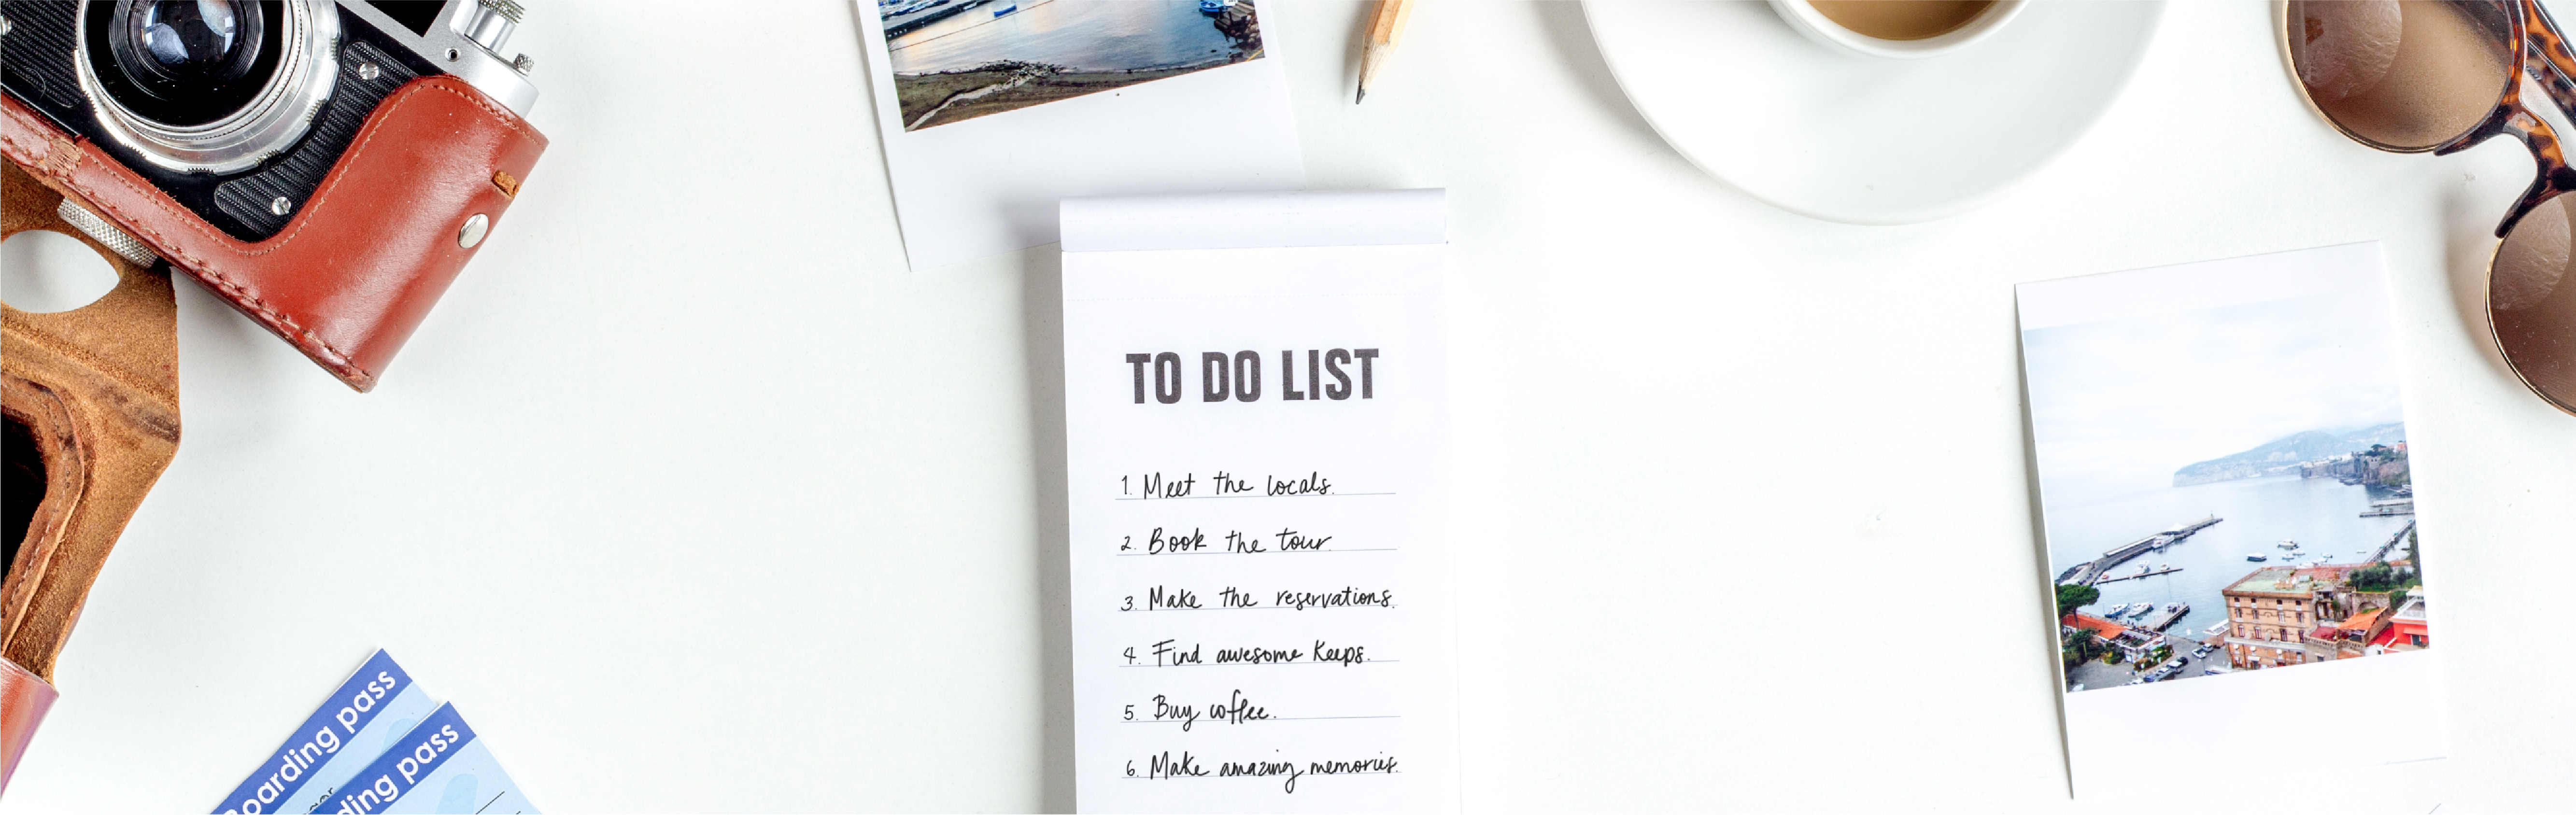 TO DO LIST
1. Meet the locals.
2. Book the tour.
3. Make the reservations.
4. Find awesome Keeps.
5. Buy coffee.
6. Make amazing memories.
Boarding pass
ding pass